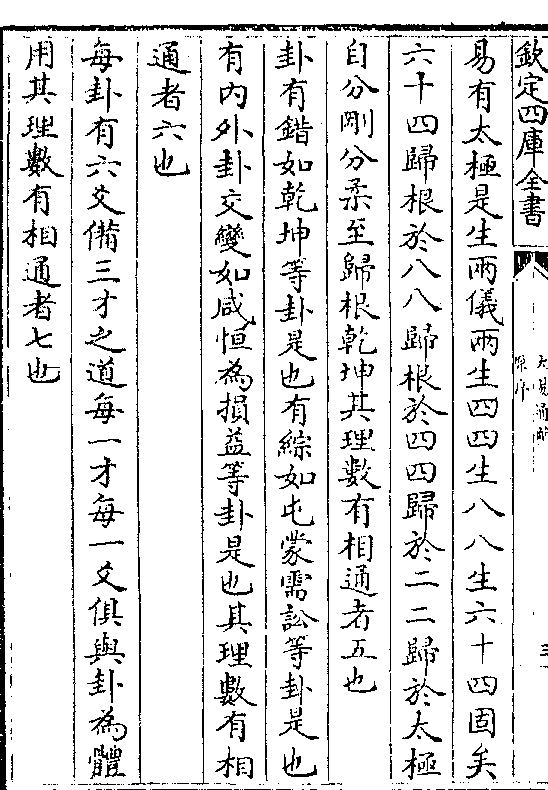 欽定四庫全書
大易通解
原序
三
易有太極是生兩儀兩生四四生八八生六十四固矣
六十四歸根於八八歸根於四四歸於二二歸於太極
自分剛分柔至歸根乾坤其理數有相通者五也
卦有錯如乾坤等卦是也有綜如屯蒙需訟等卦是也
有內外卦交變如咸恒為損益等卦是也其理數有相
通者六也
每卦有六爻備三才之道每一才每一爻俱與卦為體
用其理數有相通者七也